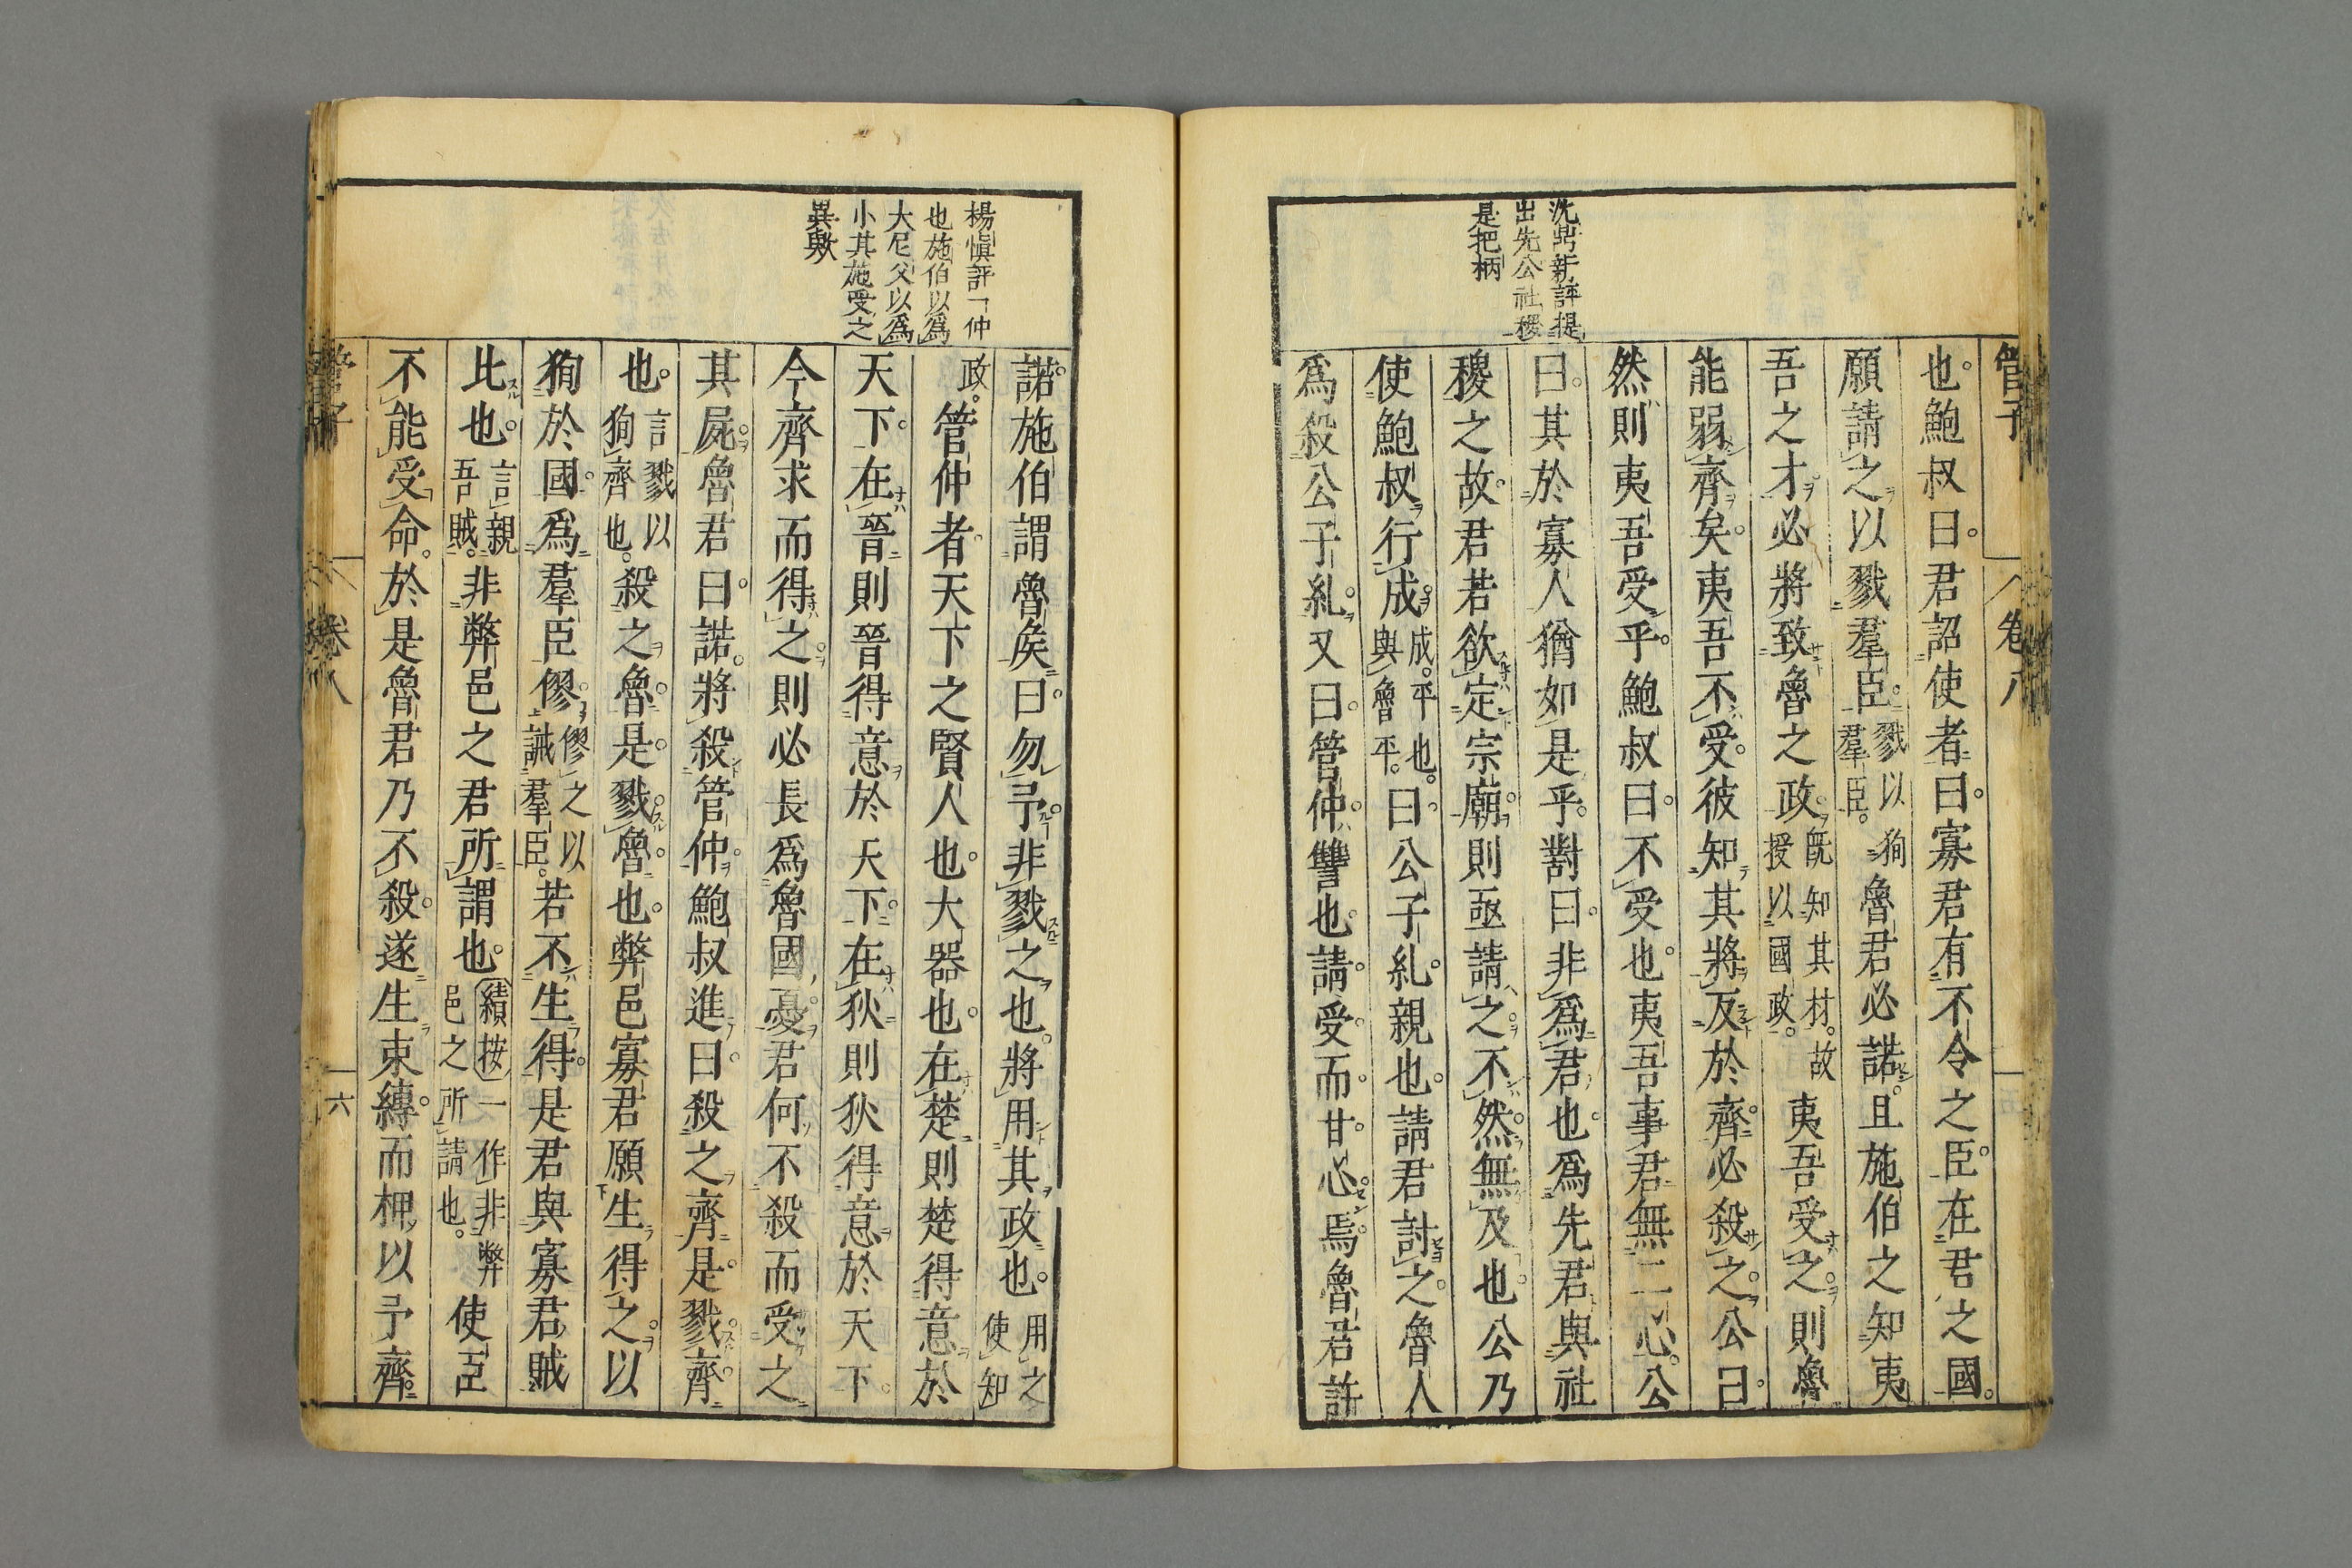 管子
卷八
沈鼎新評提
出先公社稷
是把柄
也鮑叔曰君詔使者曰寡君有不令之臣在君之國
願請之以戮羣臣戮以狥羣臣魯君必諾且施伯之知夷
吾之才必將致魯之政既知其材故授以國政夷吾受之則魯
能弱齊矣夷吾不受彼知其將反於齊必殺之公曰
然則夷吾受乎鮑叔曰不受也夷吾事君無二心公
曰其於寡人猶如是乎對曰非爲君也爲先君與社
稷之故君若欲定宗廟則亟請之不然無及也公乃
使鮑叔行成成平也與魯平曰公子糺親也請君討之魯人
爲殺公子糺又曰管仲讐也請受而甘心焉魯君許
楊愼評一仲
也施伯以爲
大尼父以爲
小其施受之
異歟
諾施伯謂魯矦曰勿予非戮之也將用其政也用之使知
政管仲者天下之賢人也大器也在楚則楚得意於
天下在晉則晉得意於天下在狄則狄得意於天下
今齊求而得之則必長爲魯國憂君何不殺而受之
其屍魯君曰諾將殺管仲鮑叔進曰殺之齊是戮齊
也言戮以狥齊也殺之魯是戮魯也弊邑寡君願生得之以
狥於國爲羣臣僇僇之以誡羣臣若不生得是君與寡君賊
比也言親吾賊非弊邑之君所謂也績按一作非弊邑之所請也使臣
不能受命於是魯君乃不殺遂生束縛而柙以予齊
管子
卷八
六